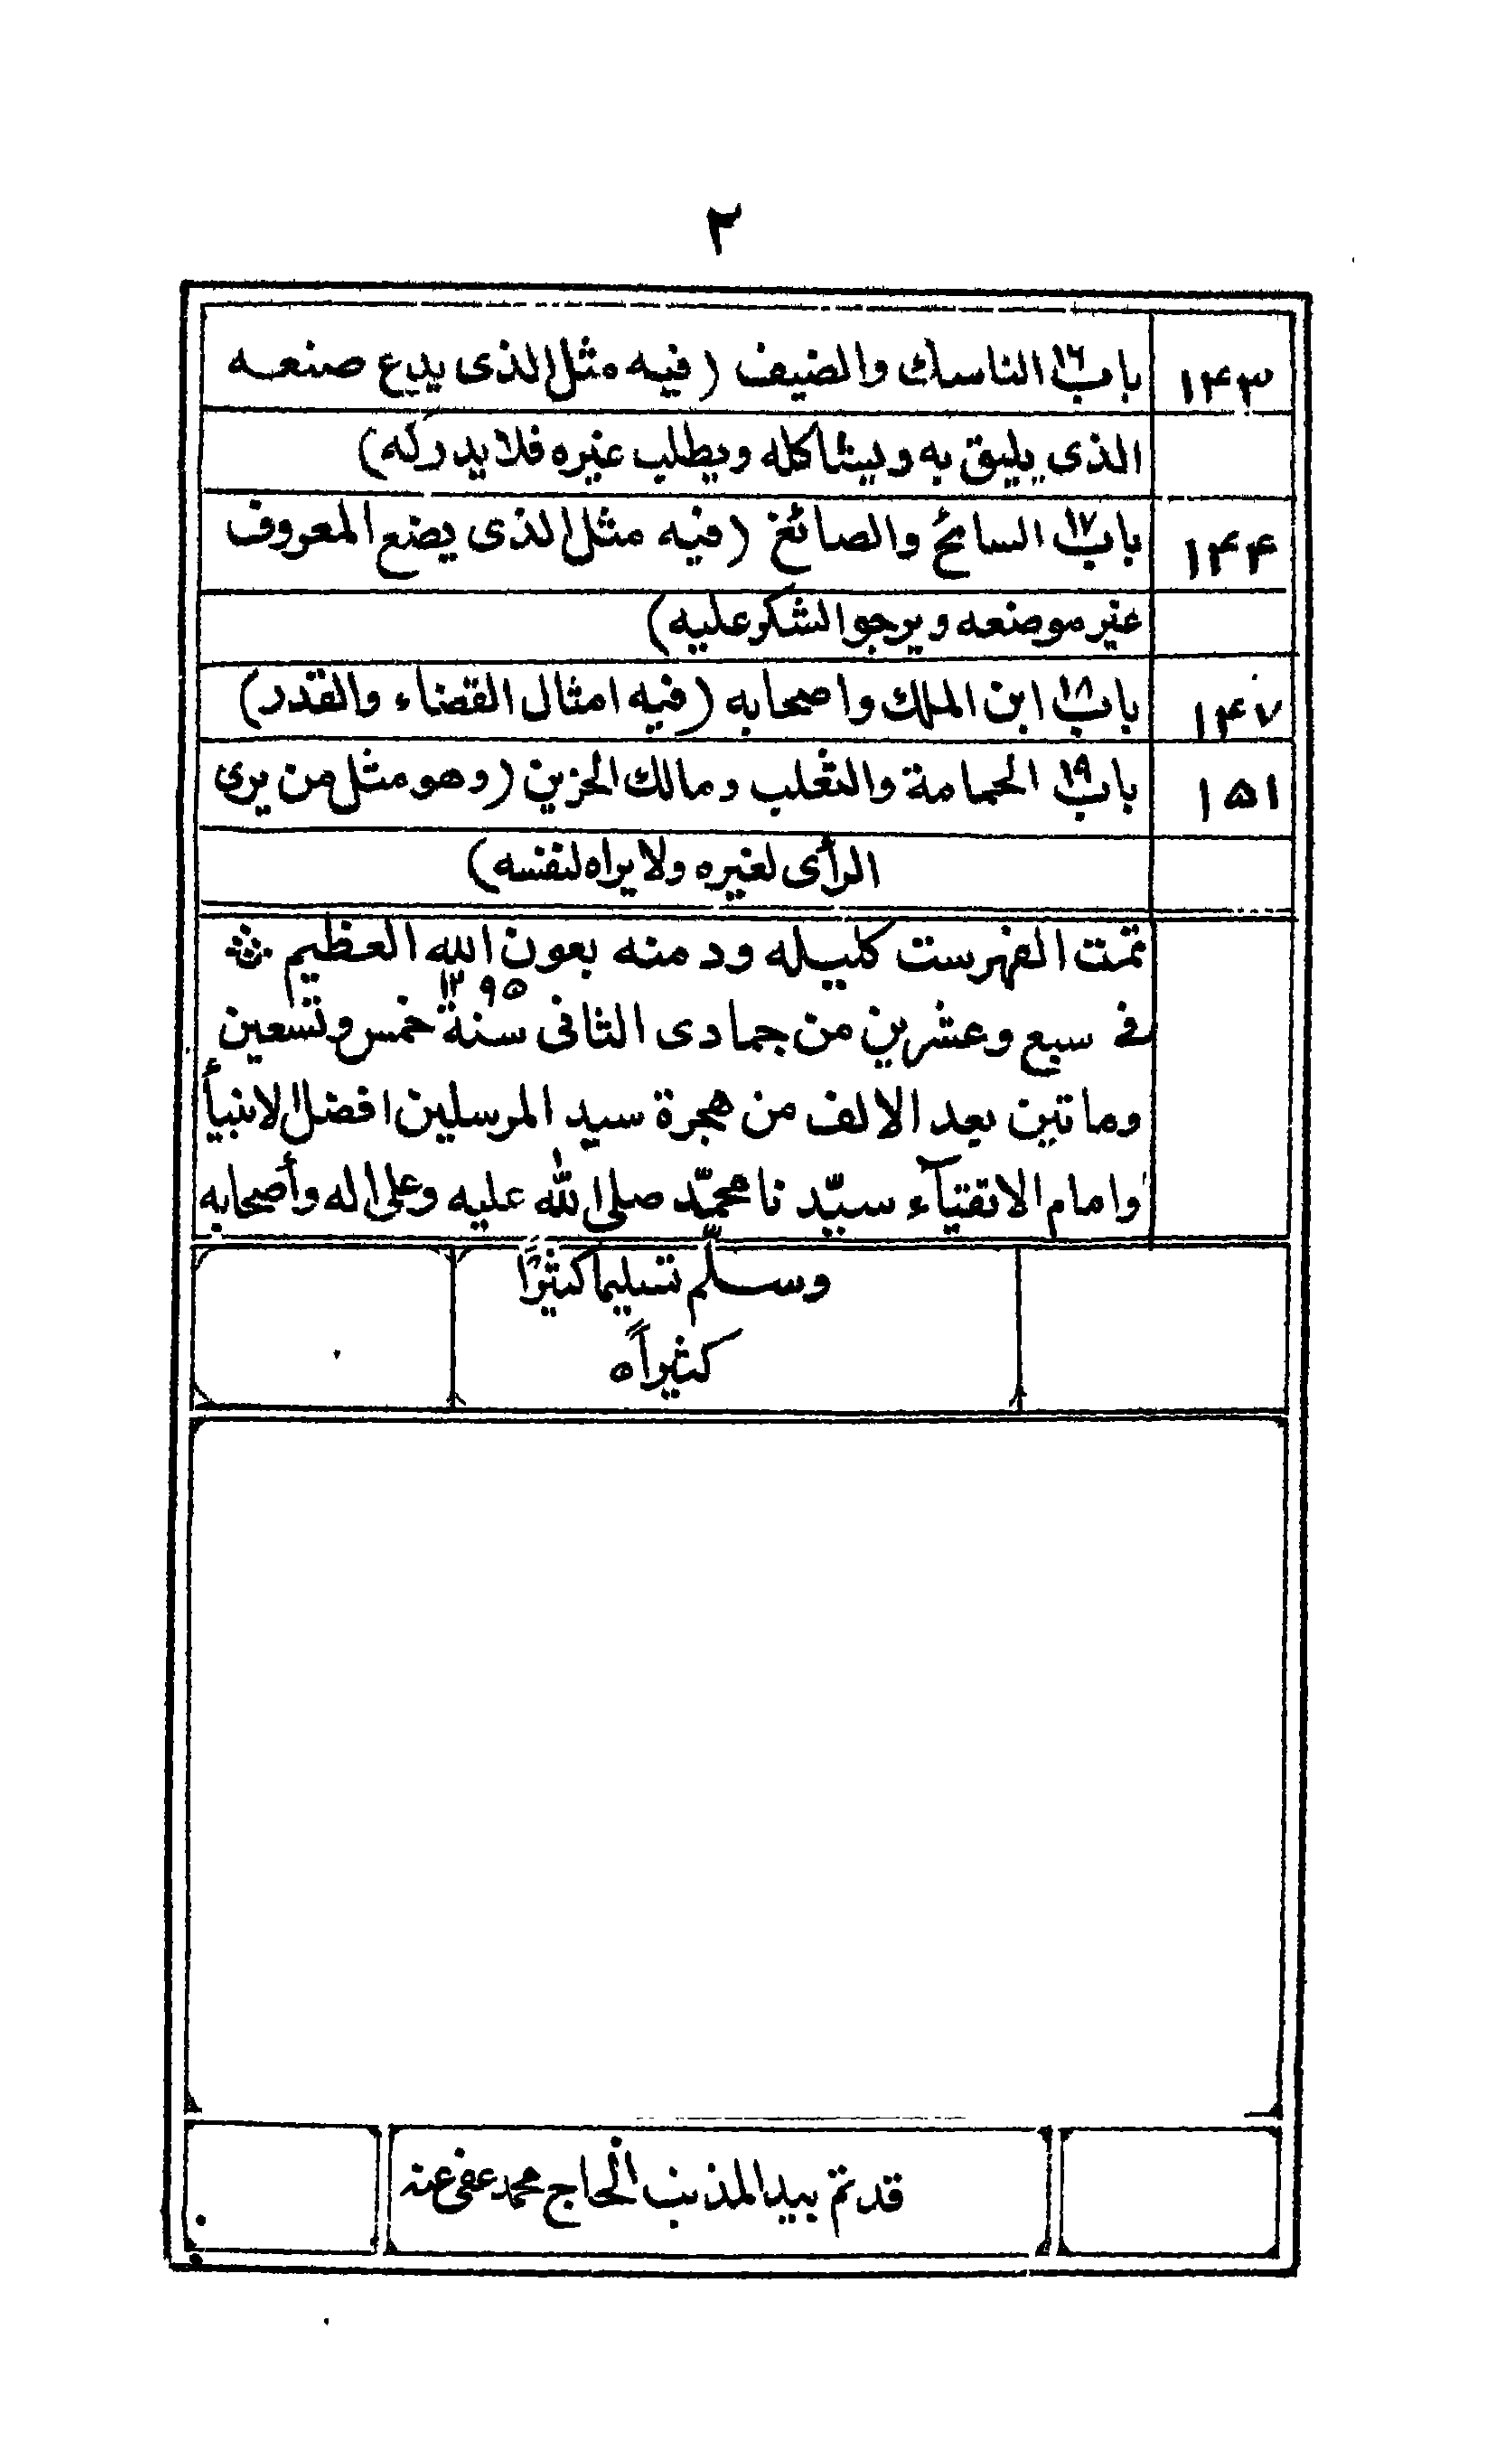 ٢
١۴٣ باب ١٦ الناسك والضيف (فيه مثل الذى يدع صنعه
الذى يليق به ويشاكله ويطلب غيره فلا يدركه)
١۴۴ باب ١٧ السائح والصائغ (فيه مثل الذى يضع المعروف
غير موضعه ويرجو الشكر عليه)
١۴٧ باب ١٨ ابن الملك واصحابه (فيه امثال القضاء والقدر)
١۵١ باب ١٩ الحمامة والثعلب ومالك الحزين (وهو مثل من يرى
الرأى لغيره ولا يراه لنفسه)
تمت الفهرست كليله ودمنه بعون الله العظيم
فى سبع وعشرين من جمادى الثانى سنة ١٢٩۵ خمس وتسعين
وماتين بعد الالف من هجرة سيد المرسلين افضل الانبيأ
وامام الاتقيآء سيّد نا محمّد صلى الله عليه وعلى اله وأصحابه
وسلّم تسليما كثيرًا
كثيراً ه
قد تم بيد المذنب الحاج محمد عفى عنه